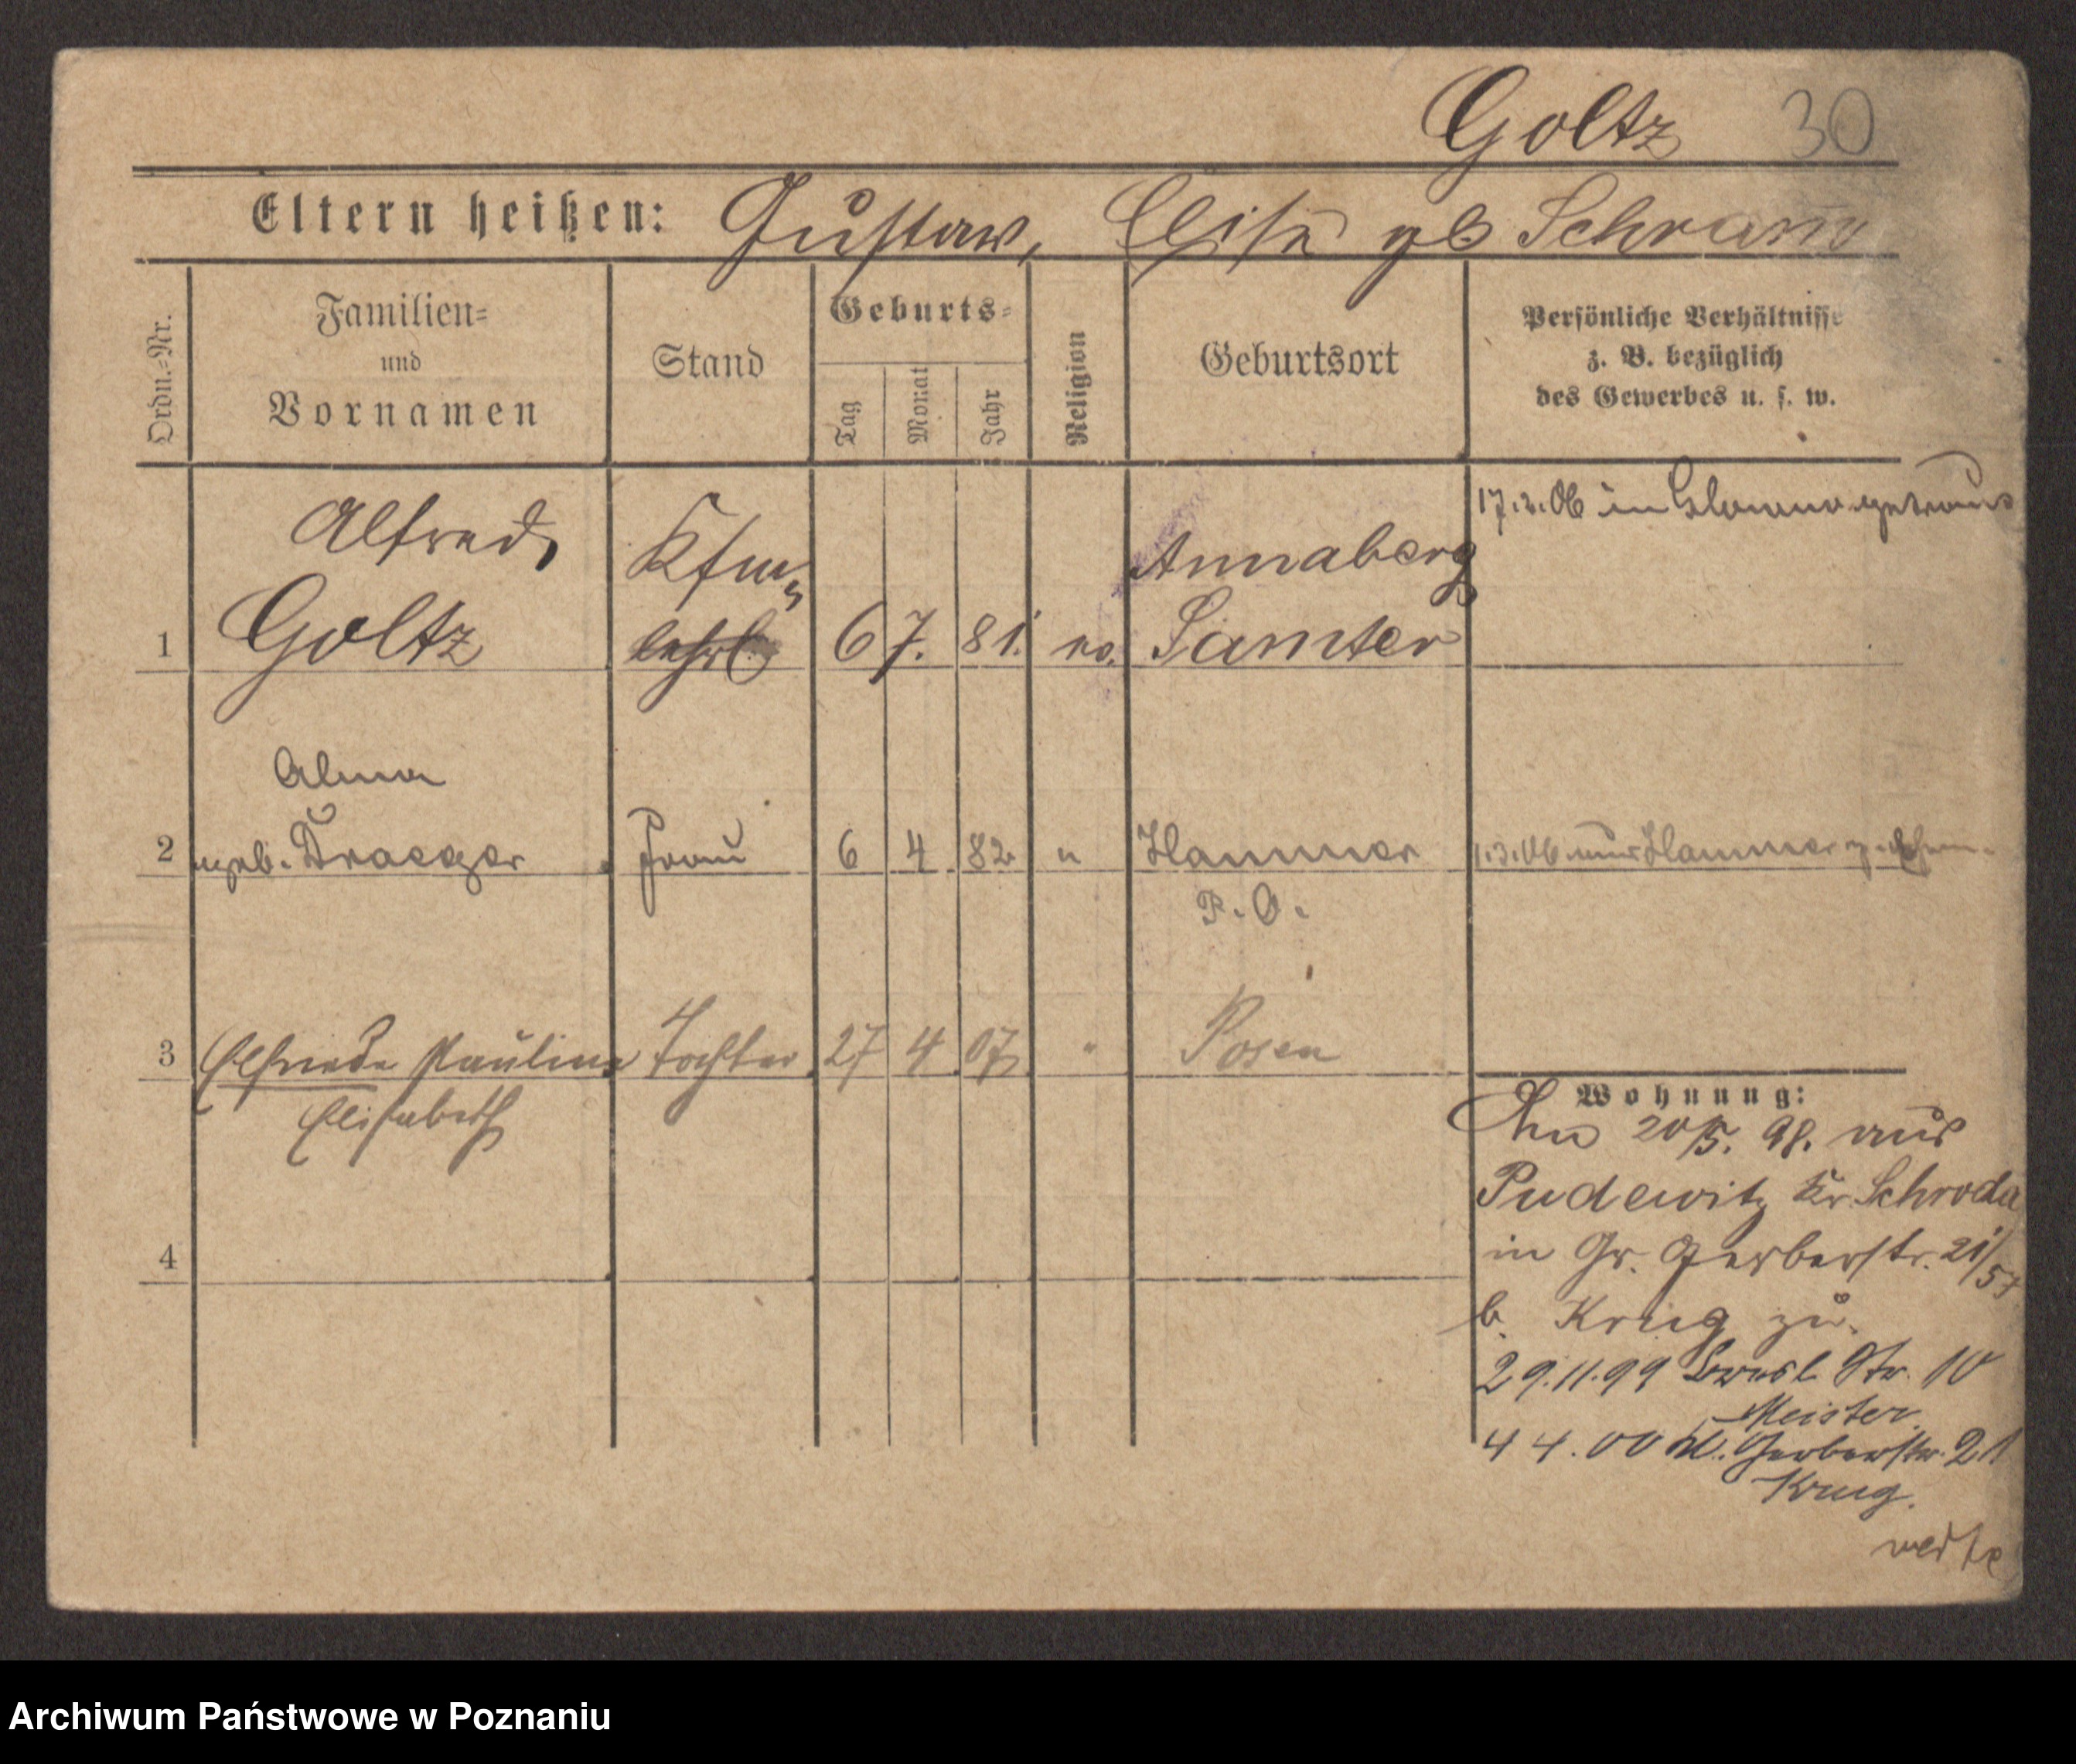 Goltz 30
Eltern heißen: Gustav, Elise gb Schramm
Ordn.-Nr.
Familien-
und
Vornamen
Stand
Geburts-
Tag
Monat
Jahr
Religion
Geburtsort
Persönliche Verhältnisse
z. B. bezüglich
des Gewerbes u. s. w.
Alfred,
Kfm,
Annaberg
17.2.06 in getraut
1 Goltz lehrl 6 7. 81. ev. Samter
Alma
2 geb. Draeger Frau 6 4 82 " Hammer
3.06 aus Hammer
P. O.
3 Elfriede Pauline Tochter 27 4 07 " Posen
Elisabeth
Wohnung:
Am 20/5. 98. aus
Pudewitz Kr. Schroda
4
in Gr. Gerberstr. 21/57
b. Krug zu.
29.11.99 Bresl Str. 10
Meister
4 4.00 Kl. Gerberstr. 21
Krug.